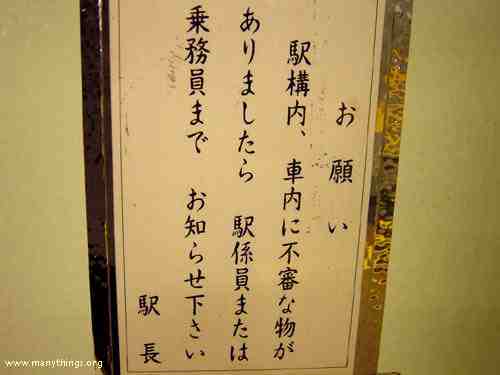 お願い
駅構内、車内に不審な物が
ありましたら 駅係員または
乗務員まで お知らせ下さい
駅長
www.manythings.org